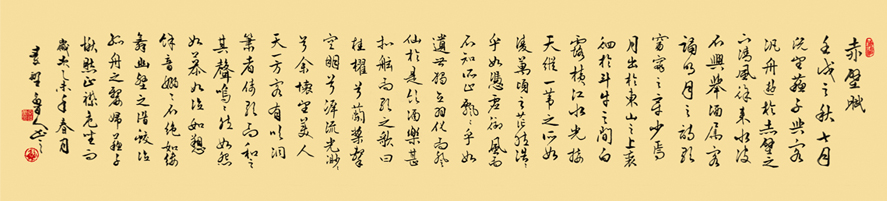 赤壁賦
壬戌之秋七月
既望蘇子與客
汎舟遊於赤壁之
下清風徐來水波
不興舉酒屬客
誦明月之詩歌
窈窕之章少焉
月出於東山之上裴
徊於斗牛之間白
露橫江水光接
天縱一葦之所如
凌萬頃之茫然浩浩
乎如憑虛御風而
不知所止飄飄乎如
遺世獨立羽化而登
仙於是飲酒樂甚
扣舷而歌之歌曰
桂櫂兮蘭槳擊
空明兮泝流光渺渺
兮余懷望美人
天一方客有吹洞
簫者倚歌而和之
其聲嗚嗚然如怨
如慕如泣如訴
餘音嫋嫋不絕如縷
舞幽壑之潛蛟泣
孤舟之嫠婦蘇子
愀然正襟危坐而
乙未年春月